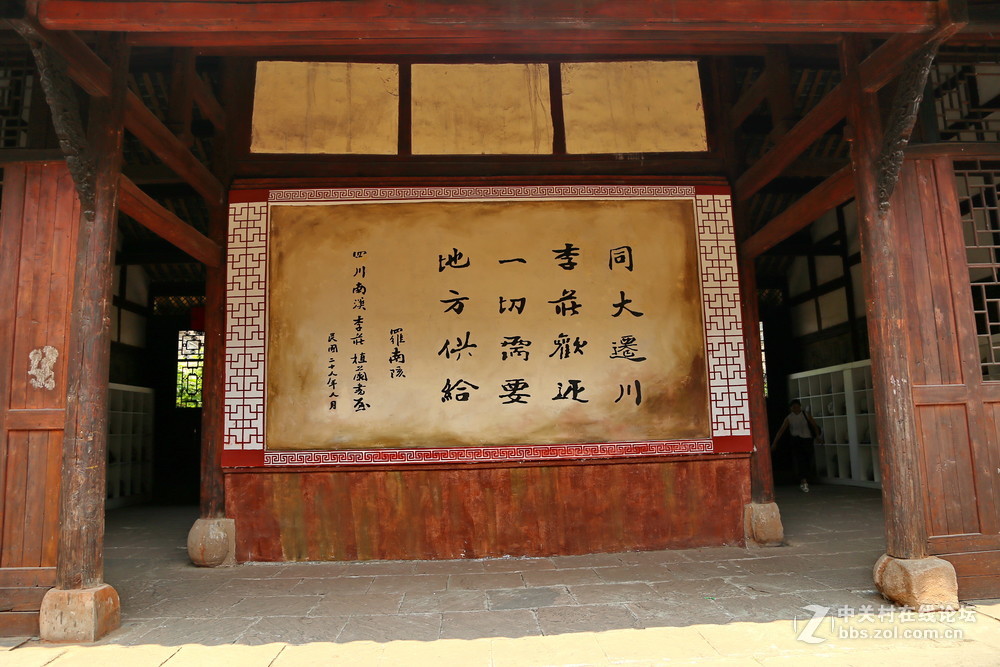 同大遷川
李莊歡迎
一切需要
地方供給
羅南陔
四川南溪李莊植蘭書屋
民國二十九年八月
中关村在线论坛
bbs.zol.com.cn